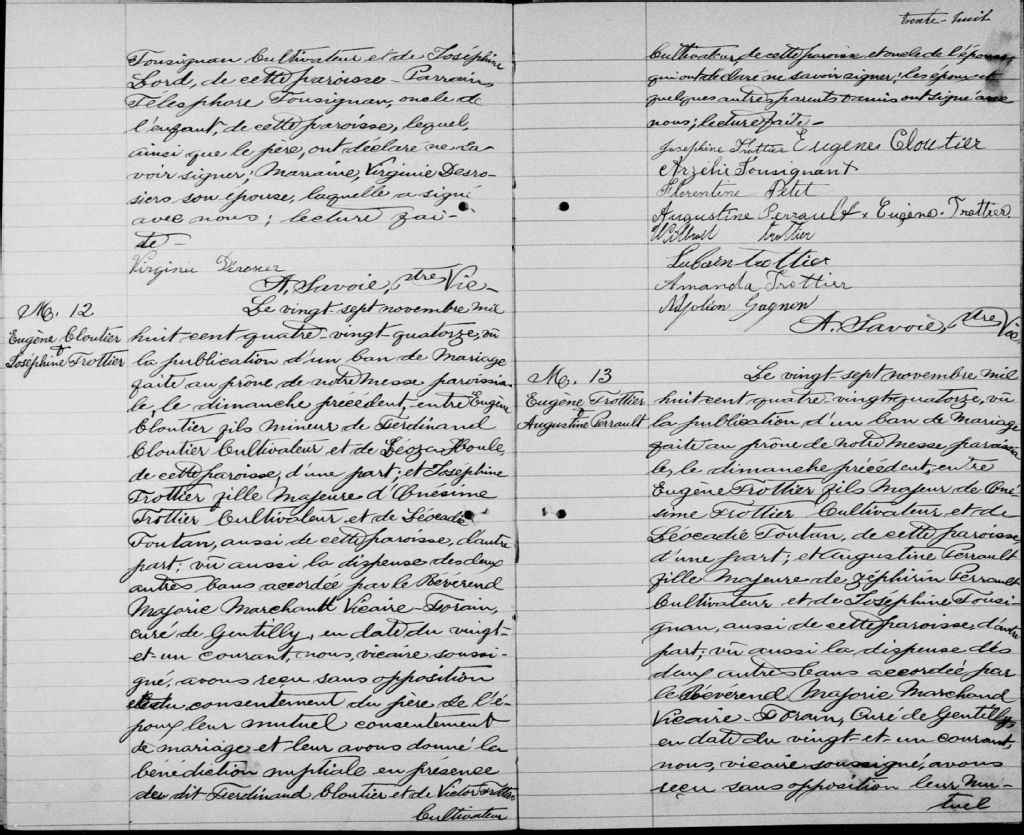 Tousignan Cultivateur et de Joséphine
Lord, de cette paroisse - Parrain,
Télesphore Tousignan, oncle de
l'enfant, de cette paroisse, lequel,
ainsi que le père, ont déclaré ne sa-
voir signer; Marraine, Virginie Desro-
siers son épouse, laquelle a signé
avec nous; lecture fai-
te -
Virginie Dérosier
A. Savoie, Ptre Vic -
M. 12
Eugène Cloutier
&
Joséphine Trottier
Le vingt-sept novembre mil
huit-cent-quatre-vingt-quatorze, vû
la publication d'un ban de Mariage
faite au prône de notre Messe paroissia-
le, le dimanche précédent, entre Eugène
Cloutier fils mineur de Ferdinand
Cloutier Cultivateur et de Léoza Houle,
de cette paroisse, d'une part; et Joséphine
Trottier fille Majeure d'Onésime
Trottier Cultivateur et de Léocadie
Toutan, aussi de cette paroisse, d'autre
part; vû aussi la dispense des deux
autres bans accordée par le Réverend
Majorie Marchand Vicaire-Forain,
curé de Gentilly, en date du vingt-
et-un courant, nous, vicaire soussi-
gné, avons reçu sans opposition
et du consentement du père de l'é-
poux leur mutuel consentement
de mariage et leur avons donné la
bénédiction nuptiale en présence
du dit Ferdinand Cloutier et de Victor Trottier
Cultivateur
trente-huit
Cultivateur, de cette paroisse et oncle de l'épouse,
qui ont déclaré ne savoir signer; les époux et
quelques autres parents & amis ont signé avec
nous; lecture faite -
Josephine Trottier Eugènes Cloutier
Arzélie Tousignant
Florentine Pétet
Augustine Perrault & Eugène Trottier
trottier
Lubain trottier
Amanda Trottier
Gagnon
A. Savoie, Ptre Vic.
M. 13
Eugène Trottier
&
Augustine Perrault
Le vingt-sept novembre mil
huit cent quatre-vingt-quatorze, vû
la publication d'un ban de Mariage
faite au prône de notre Messe paroissia-
le, le dimanche précédent, entre
Eugène Trottier fils Majeur de Oné-
sime Trottier Cultivateur et de
Léocadie Toutan, de cette paroisse,
d'une part; et Augustine Perrault
fille Majeure de Zéphirin Perrault
Cultivateur et de Joséphine Tousi-
gnan, aussi de cette paroisse, d'autre
part; vû aussi la dispense des
deux autres bans accordée par
le Réverend Majorie Marchand
Vicaire-Forain, Curé de Gentilly,
en date du vingt-et-un courant,
nous, vicaire soussigné, avons
reçu sans opposition leur mu-
tuel